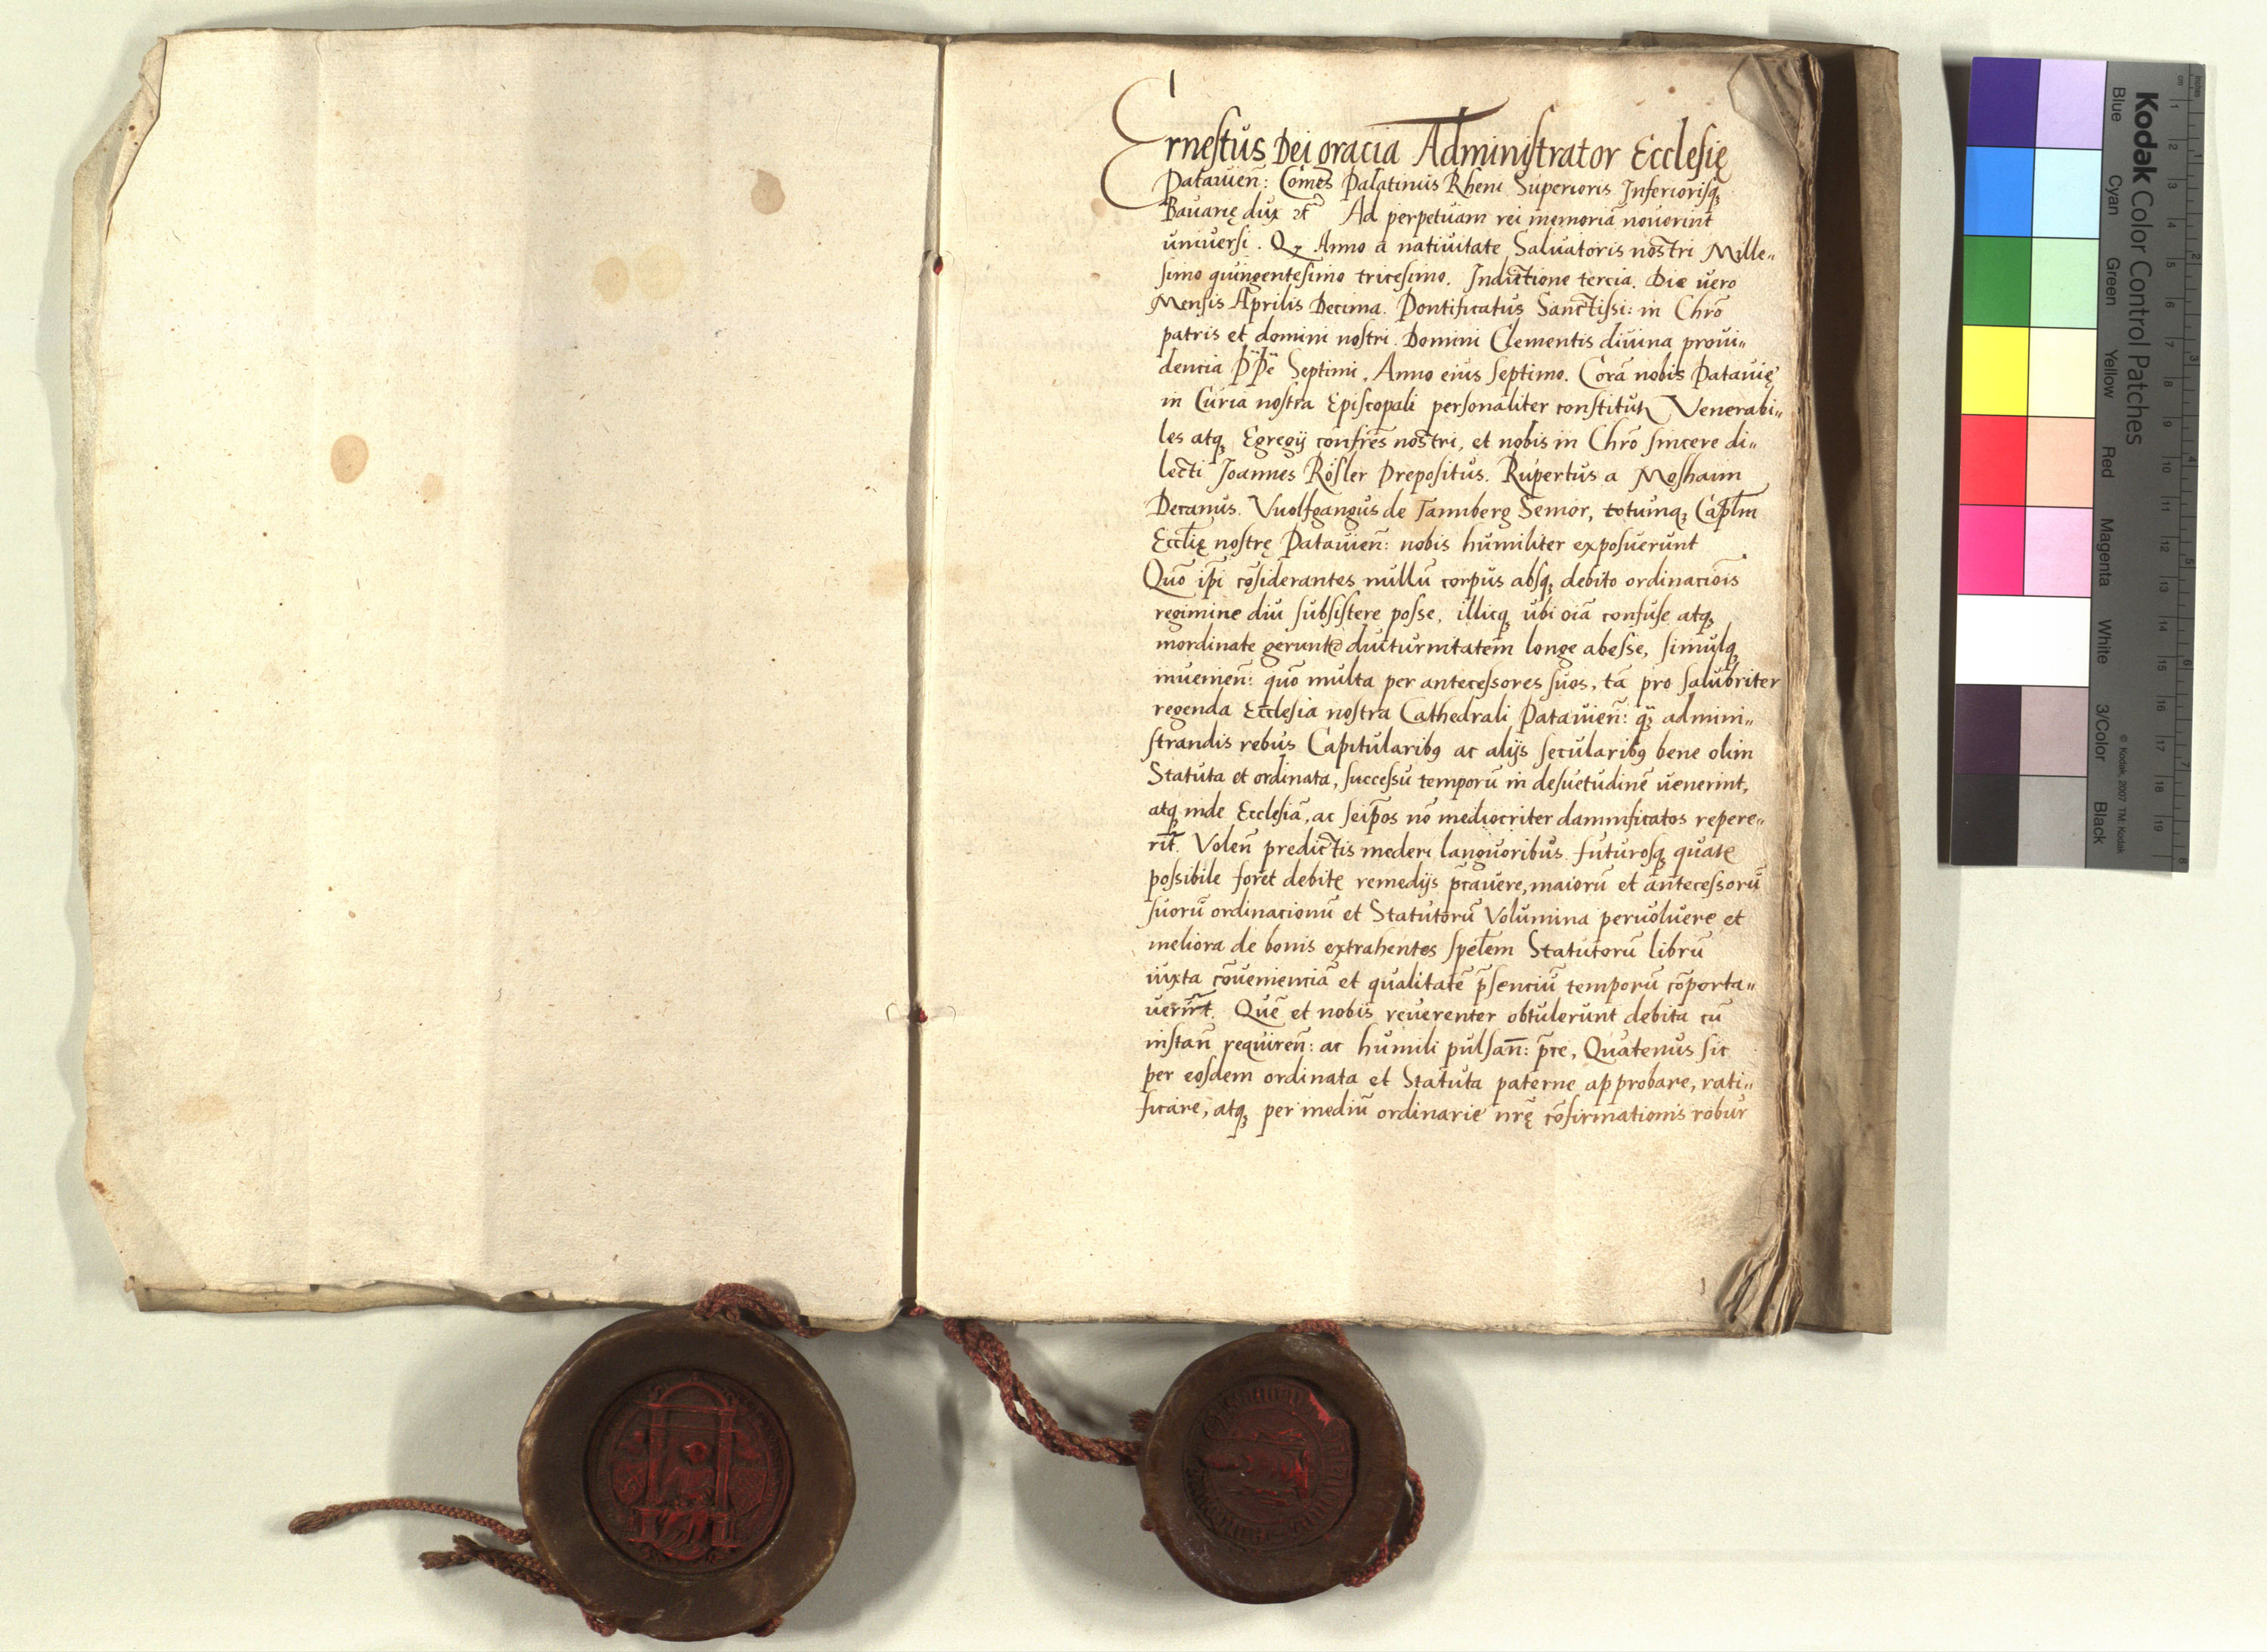 Ernestus Dei gracia Administrator Ecclesię
Patauien̄: Comes Palatinus Rheni Superioris Inferiorisq;
Bauarię dux Ad perpetuam rei memoriā nouerint
uniuersi. Anno a natiuitate Saluatoris nostri Mille„
simo quingentesimo tricesimo. Indictione tercia. Die uero
Mensis Aprilis Decima. Pontificatus Sanctissi: in Chrō
patris et domini nostri. Domini Clementis diuina proui„
dencia Septimi. Anno eius septimo. Corā nobis Patauię
in Curia nostra Episcopali personaliter Venerabi„
les atq; Egregij confrēs nostri, et nobis in Chrō sincere di„
lecti Joannes Rösler Prepositus. Rupertus a Moshaim
Decanus. Vuolfgangus de Tannberg Senior, totumq; Caplm̄
Eccl̄ię nostrę Patauien̄: nobis humiliter exposuerunt
Quō ip̄i cōsiderantes nullū corpus absq; debito ordinaciōis
regimine diu subsistere posse, illicq; ubi oīa confuse atq;
inordinate longe abesse, simulq;
inuenien̄: quō multa per antecessores suos, tā pro salubriter
regenda Ecclesia nostra Cathedrali Patauien̄: q̄; admini„
strandis rebus Capitularibꝯ ac alijs secularibꝯ bene olim
Statuta et ordinata, successu temporū in desuetudinē uenerint,
atq; inde Ecclesiā, ac seip̄os nō mediocriter damnificatos repere„
rīt. Volen̄ predictis mederi languoribus futurosq;
possibile foret remedijs p̄cauere, maiorū et antecessorū
suorū ordinacionū et Statutorū Volumina peruoluere et
meliora de bonis extrahentes Statutorū librū
iuxta cōuenienciā et qualitatē p̄senciū temporū cōporta„
uerint. Quē et nobis reuerenter obtulerunt debita cū
instan̄ requiren̄: ac humili pulsan̄: p̄ce, Quatenus sic
per eosdem ordinata et Statuta paterne approbare, rati„
ficare, atq; per mediū ordinarie nr̄ę cōfirmationis robur
Kodak Color Control Patches
Blue Cyan Green Yellow Red Magenta White 3/Color Black
© Kodak, 2007 TM: Kodak
inches
cm
1 2 3 4 5 6 7 8 9 10 11 12 13 14 15 16 17 18 19
1 2 3 4 5 6 7 8